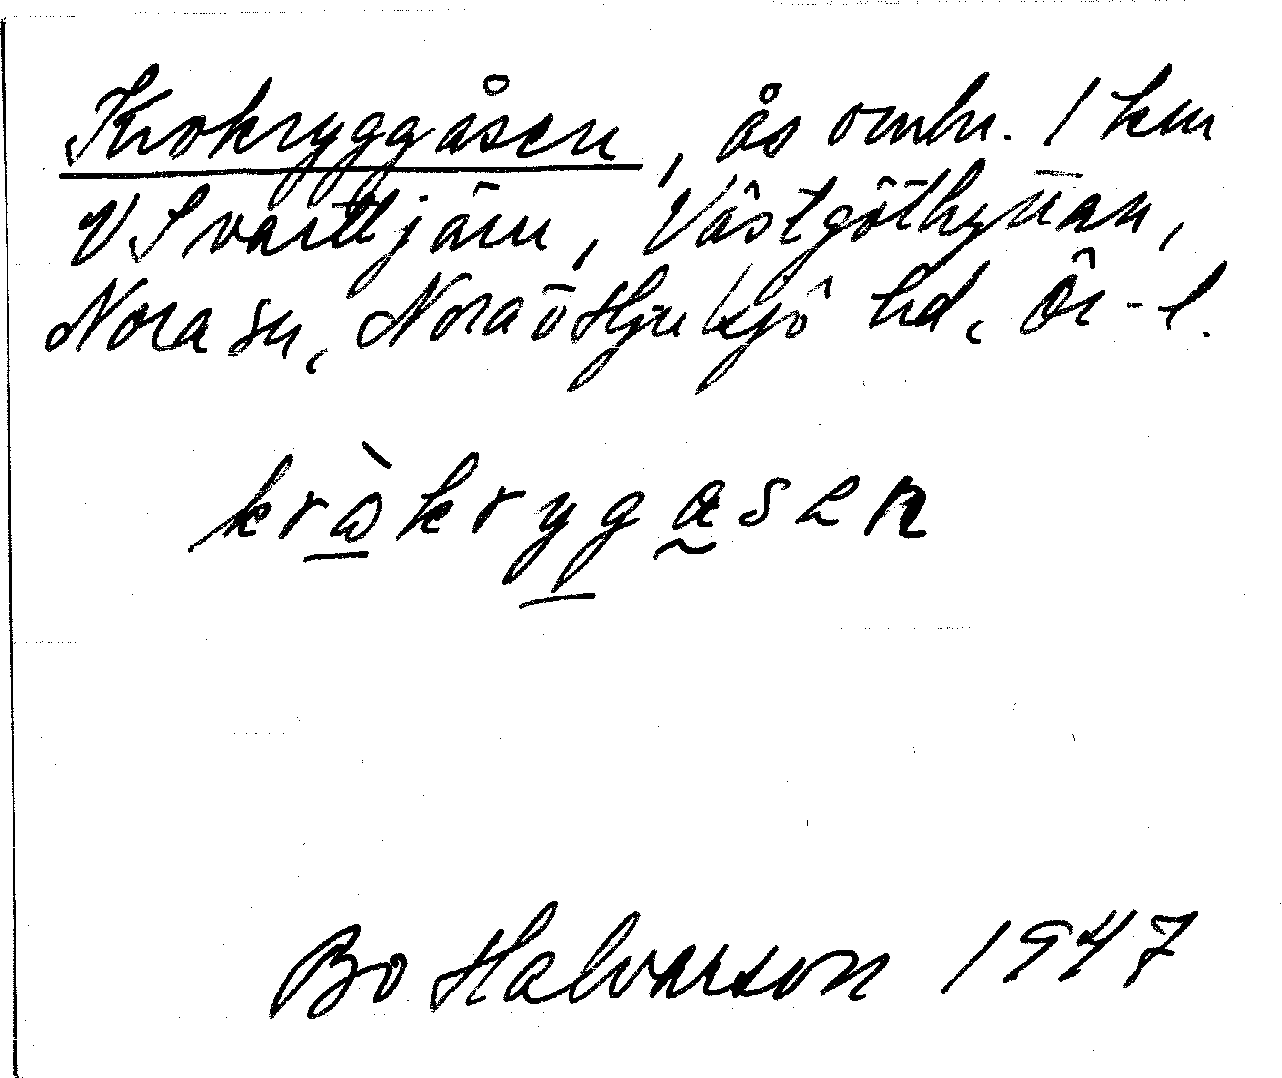 Krokryggåsen, ås omkr. 1 km
V Svarttjärn, Västgöthyttan,
Nora sn, Nora ö Hjulsjö hd, Ör-l.
kròkrygåsen
Bo Halvarson 1947